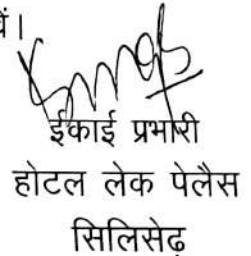 में।
ईकाई प्रभारी
होटल लेक पेलैस
सिलिसेढ़